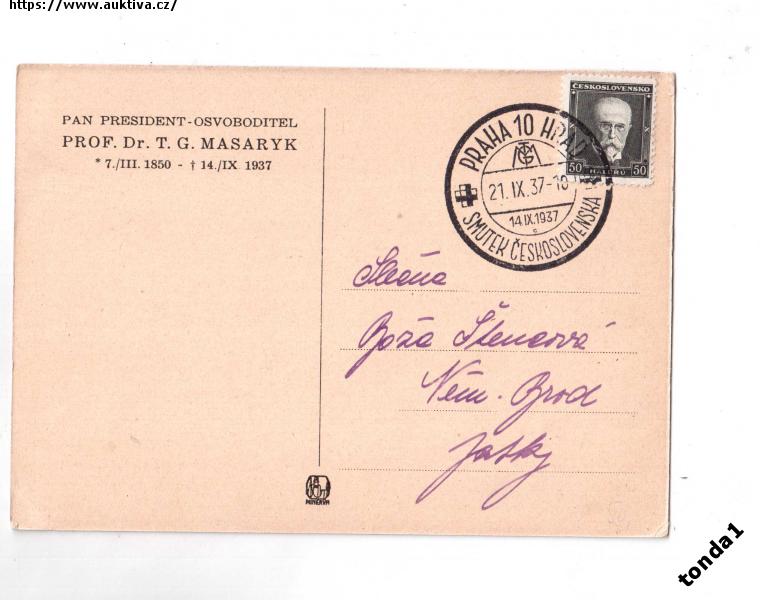 https://www.auktiva.cz/
PAN PRESIDENT-OSVOBODITEL
PROF. Dr. T. G. MASARYK
* 7./III. 1850 - † 14./IX. 1937
ČESKOSLOVENSKO
50 HALÉŘŮ 50
PRAHA 10 HRAD
TGM
21. IX. 37-18
14.IX.1937
SMUTEK ČESKOSLOVENSKA
Slečna
Boža Štencová
Něm. Brod
Jatky
MINERVA
tonda1